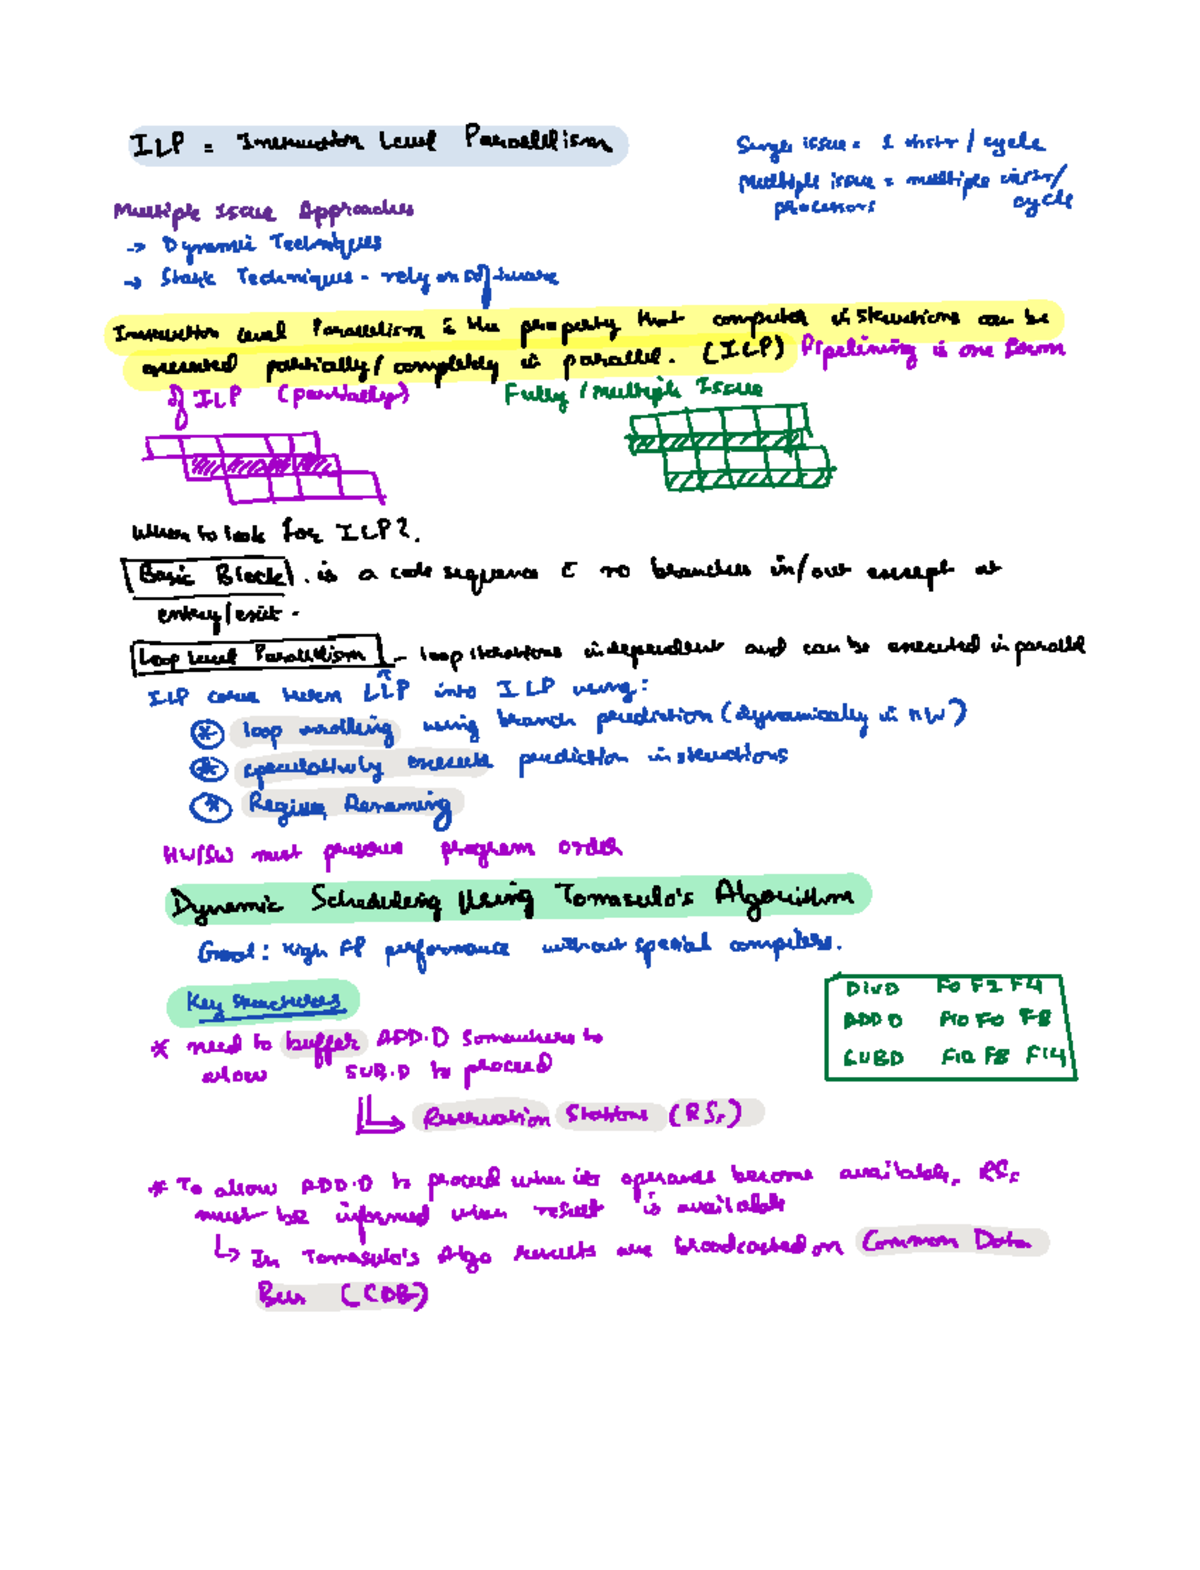 ILP = Instruction Level Parallelism
Single issue = 1 instr / cycle
Multiple issue = multiple instr/
processors cycle
Multiple Issue Approaches
-> Dynamic Techniques
-> Static Techniques - rely on software
Instruction level Parallelism is the property that computer instructions can be
executed partially / completely in parallel. (ILP) Pipelining is one form
of ILP (partially)
Fully / multiple Issue
Where to look for ILP?.
Basic Block . is a code sequence c no branches in/out except at
entry/exit -
Loop Level Parallelism - loop iterations independent and can be executed in parallel
ILP LLP into ILP using:
* loop unrolling using branch prediction (dynamically in HW)
* speculatively execute prediction instructions
* Register Renaming
HW/SW must preserve program order
Dynamic Scheduling Using Tomasulo's Algorithm
Goal: High FP performance without special compilers.
Key structures
DIVD F0 F2 F4
ADDD F10 F0 F8
SUBD F12 F8 F14
* need to buffer ADD.D somewhere to
allow SUB.D to proceed
Reservation Stations (RSs)
* To allow ADD.D to proceed when its operands become available, RSs
must be informed when result is available
↳ In Tomasulo's Algo results are broadcasted on Common Data
Bus (CDB)